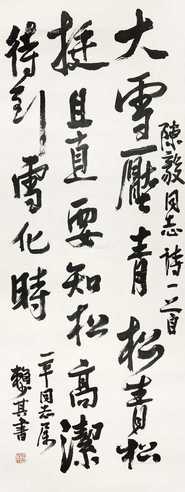 陳毅同志詩一首
大雪壓青松青松
挺且直要知松高潔
待到雪化時
一平同志属
賴少其書